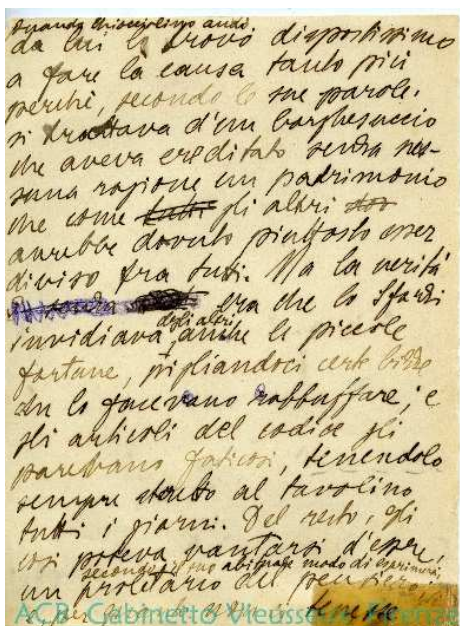 Quando chiocciolino andò
da lui lo trovò dispostissimo
a fare la causa tanto più
perché, secondo le sue parole,
si trattava d'un borghesuccio
che aveva ereditato senza nes-
suna ragione un padrimonio
che come tutti gli altri
avrebbe dovuto piuttosto esser
diviso fra tutti. Ma la verità
era che lo
invidiava degli altri, anche le piccole
fortune, pigliandoci certe bizze
che lo facevano rabbuffare; e
gli articoli del codice gli
parevano faticosi, tenendolo
sempre al tavolino
tutti i giorni. Del resto, gli
così poteva vantarsi d'essere,
secondo il suo abituale modo di esprimersi,
un proletario del pensiero

ACB Gabinetto Vieusseux Firenze